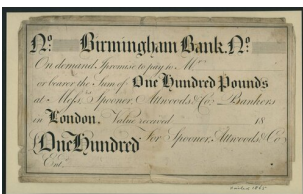 No. Birmingham Bank. No.
On demand I promise to pay to Mr.
or bearer the Sum of One Hundred Pounds
at Messrs. Spooner, Attwoods & Co. Bankers
in London. Value received 18
For Spooner, Attwoods & Co.
One Hundred
Entd.